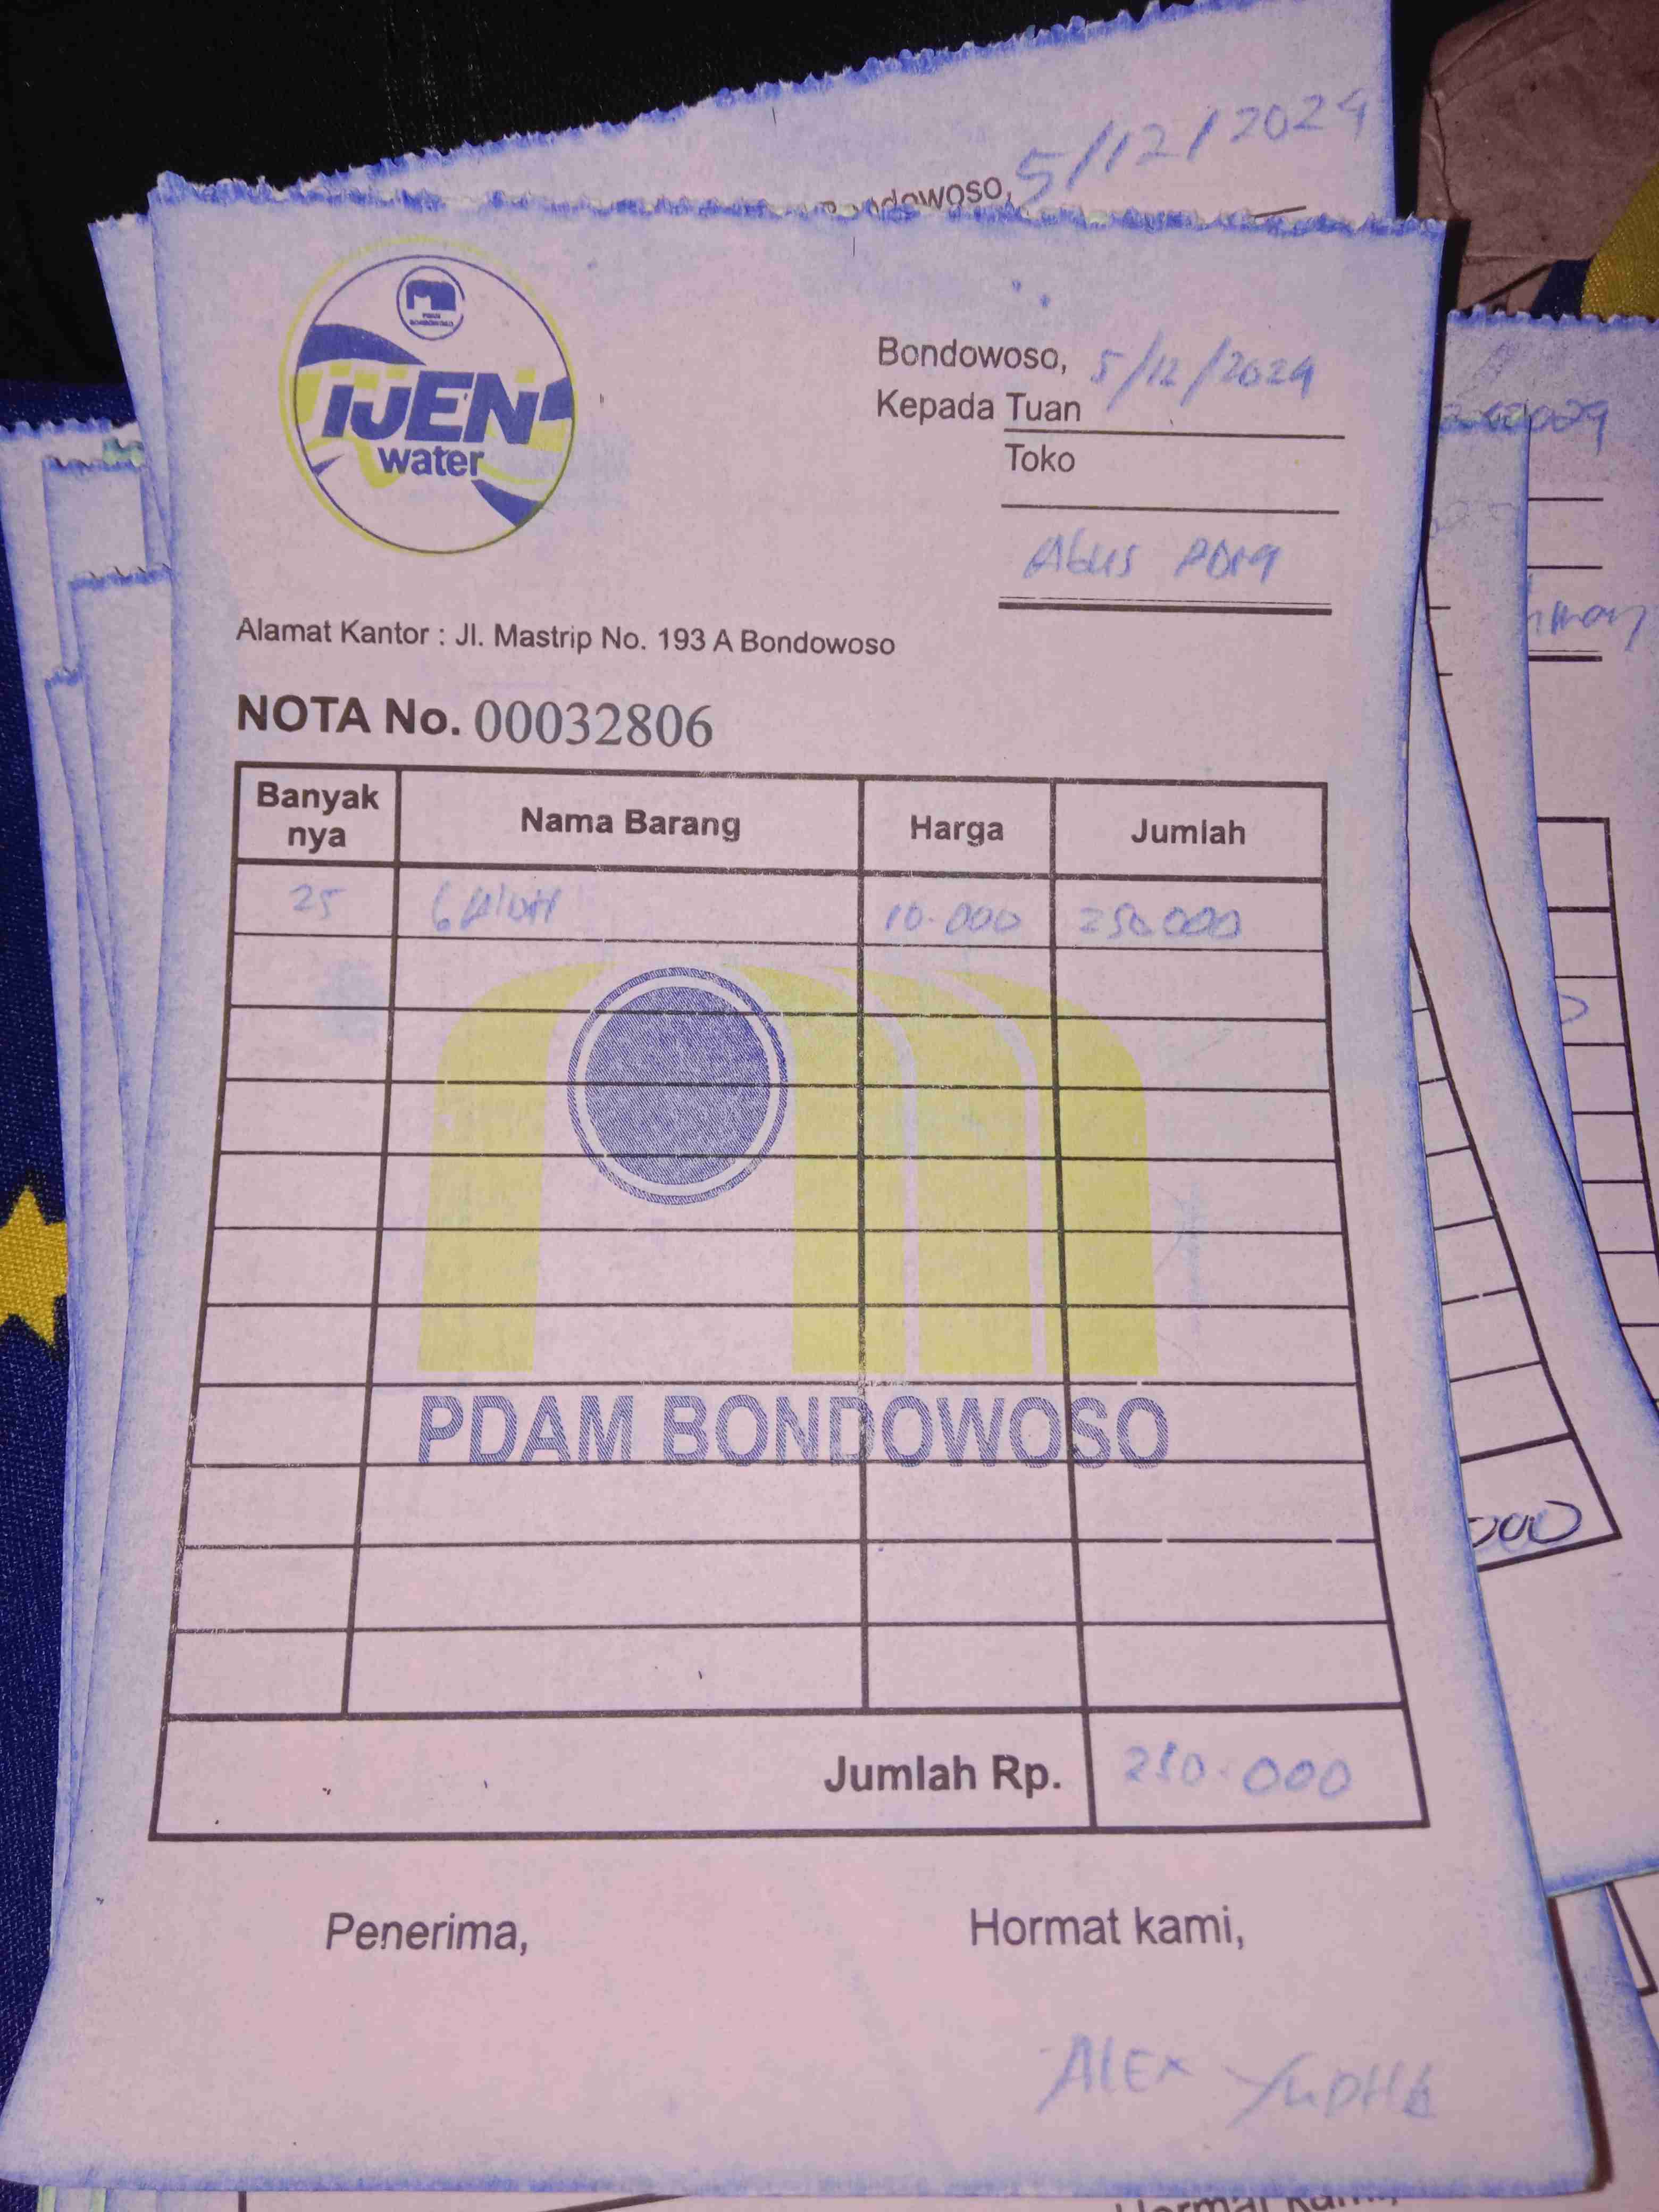 Bondowoso, 5/12/2024
PDAM
BONDOWOSO
IJEN
water
Bondowoso, 5/12/2024
Kepada Tuan
Toko
Agus
Alamat Kantor : Jl. Mastrip No. 193 A Bondowoso
NOTA No. 00032806
Banyak nya Nama Barang Harga Jumlah
25 10.000 250.000
PDAM BONDOWOSO
Jumlah Rp. 250.000
Penerima, Hormat kami,
ALEX YUDHA
000
Hormat kami,